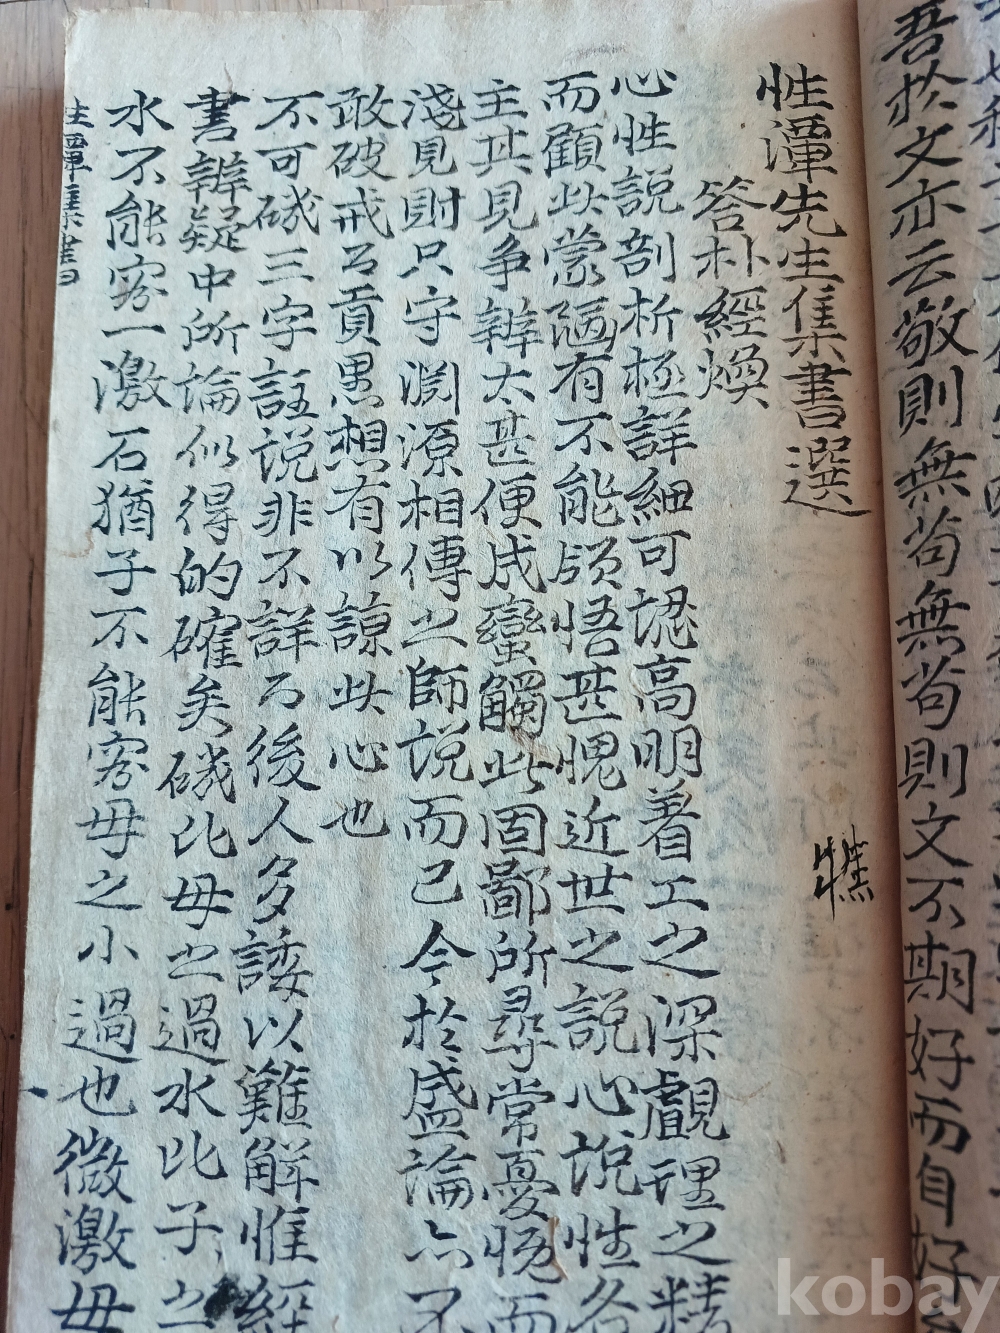 吾於文亦云敬則無苟無苟則文不期好而自好
性潭先生集書選
答朴經煥
心性說剖析極詳細可認高明着工之深觀理之精
而顧此蒙陋有不能領悟甚愧近世之說心說性各
主其見争辨太甚便成蠻觸此固鄙所尋常憂悗而
淺見則只守淵源相傳之師說而已今於盛論亦不
敢破戒而貢愚想有以諒此心也
不可磯三字註說非不詳而後人多諉以難解惟經
書辨疑中所論似得的確矣磯比母之過水比子之
水不能容一激石猶子不能容母之小過也微激母
性潭集書
kobay